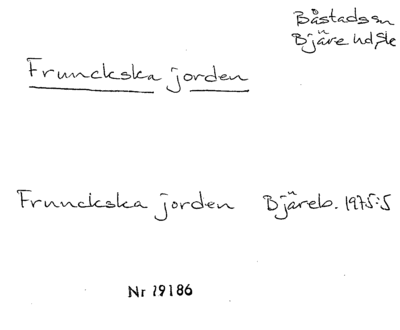 Båstads sn
Bjäre hd, Sk
Frunckska jorden
Frunckska jorden Bjäreb. 1975:5
Nr 19186